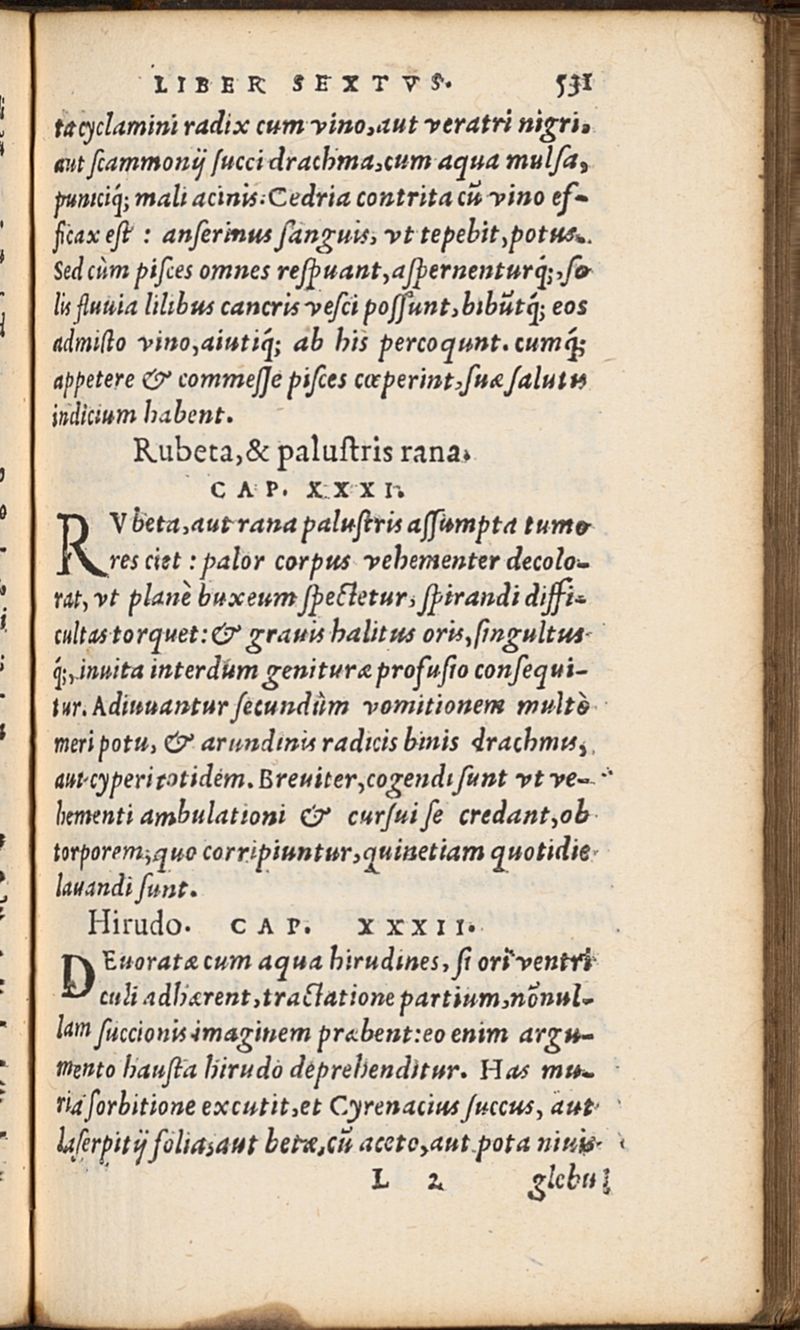 LIBER SEXTVS. 531
ta cyclamini radix cum vino, aut veratri nigri,
aut ſcammonij ſucci drachma, cum aqua mulſa,
puniciq́; mali acinis. Cedria contrita cū vino ef-
ficax eſt : anſerinus ſanguis, vt tepebit, potus.
Sed cùm piſces omnes reſpuant, aſpernenturq́;, ſo
lis fluuiatilibus cancris veſci poſſunt, bibūtq́; eos
admiſto vino, aiutiq́; ab his percoqunt. cumq́;
appetere & commeſſe piſces cœperint, ſuæ ſalutis
indicium habent.
Rubeta, & paluſtris rana.
CAP. XXXI.
RVbeta, aut rana paluſtris aſſumpta tumo
res ciet : palor corpus vehementer decolo-
rat, vt planè buxeum ſpectetur, ſpirandi diffi-
cultas torquet: & grauis halitus oris, ſingultus
q́;, inuita interdum genituræ profuſio conſequi-
tur. Adiuuantur ſecundùm vomitionem multò
meri potu, & arundinis radicis binis drachmis,
aut cyperi totidem. Breuiter, cogendi ſunt vt ve-
hementi ambulationi & curſui ſe credant, ob
torporem, quo corripiuntur, quinetiam quotidie
lauandi ſunt.
Hirudo. CAP. XXXII.
DEuoratæ cum aqua hirudines, ſi ori ventri
culi adhærent, tractatione partium, nōnul-
lam ſuccionis imaginem præbent: eo enim argu-
mento hauſta hirudo deprehenditur. Has mu-
ria ſorbitione excutit, et Cyrenacius ſuccus, aut
laſerpitij folia, aut betæ, cū aceto, aut pota niuis
L 2 glebu